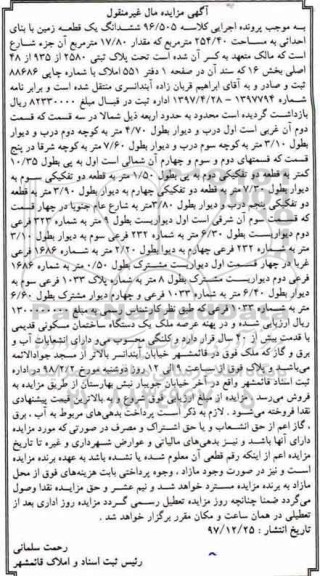 آگهی مزایده مال غیرمنقول
به موجب پرونده اجرایی کلاسه ۹۶/۵۰۵ ششدانگ یک قطعه زمین با بنای
احداثی به مساحت ۲۵۴/۴۰ مترمربع که مقدار ۱۷/۸۰ مترمربع آن جزء شارع
است که مالک متعهد به کسر آن شده است تحت پلاک ثبتی ۲۵۸۰ از ۹۳۵ از ۴۸
اصلی بخش ۱۶ که سند آن در صفحه ۱ دفتر ۵۵۱ املاک با شماره چاپی ۸۸۶۸۶
ثبت و صادر و به آقای ابراهیم قربان زاده آبندانسری منتقل شده است و برابر نامه
شماره ۱۳۹۷۷۹۴ - ۱۳۹۷/۴/۲۸ اداره ثبت در قبال مبلغ ۸۲۳۳۰۰۰۰ ریال
بازداشت گردیده است محدود به حدود اربعه ذیل شمالا در سه قسمت که قسمت
دوم آن غربی است اول درب و دیوار بطول ۴/۷۰ متر به کوچه دوم درب و دیوار
بطول ۳/۱۰ متر به کوچه سوم درب و دیوار بطول ۷/۶۰ متر به کوچه شرقا در پنج
قسمت که قسمتهای دوم و سوم و چهارم آن شمالی است اول به پی بطول ۱۰/۳۵
کمتر به قطعه دو تفکیکی دوم به پی بطول ۱/۵۰ متر به قطعه دو تفکیکی سوم به
دیوار بطول ۷/۳۰ متر به قطعه دو تفکیکی چهارم به دیوار بطول ۳/۹۰ متر به قطعه
دو تفکیکی پنجم درب و دیوار بطول ۳/۸۰متر به شارع عام جنوبا در چهار قسمت
که قسمت سوم آن شرقی است اول دیواریست بطول ۹ متر به شماره ۳۲۳ فرعی
دوم دیواریست بطول ۶/۳۰ متر به شماره ۲۳۲ فرعی سوم به دیوار بطول ۳/۱۰
متر به شماره ۲۳۲ فرعی چهارم به دیوار بطول ۲/۲۰ متر به شماره ۱۶۸۶ فرعی
غربا در چهار قسمت اول دیواریست مشترک بطول ۰/۵۰ متر به شماره ۱۶۸۶
فرعی دوم دیواریست مشترک بطول ۸ متر به شماره پلاک ۱۰۳۳ فرعی سوم به
دیوار بطول ۶/۴۰ متر به شماره ۱۰۳۳ فرعی و چهارم دیوار مشترک بطول ۶/۶۰
متر به شماره ۱۰۳۳ فرعی که طبق نظر کارشناس رسمی به مبلغ
ریال ارزیابی شده و در پهنه عرصه ملک یک دستگاه ساختمان مسکونی قدیمی
با قدمت بیش از ۴۰ سال قرار دارد و کلنگی محسوب می و دارای انشعابات آب و
برق و گاز که ملک فوق در قائمشهر خیابان آبندانسر بالاتر از مسجد جوادالائمه
می‌باشد و پلاک فوق از ساعت ۹ الی ۱۲ روز دوشنبه مورخ ۹۸/۲/۲ در اداره
ثبت اسناد قائمشهر واقع در آخر خیابان جویبار نبش بهارستان از طریق مزایده به
فروش می‌رسد. مزایده از مبلغ ارزیابی فوق شروع و به بالاترین قیمت پیشنهادی
نقدا فروخته می‌شود. لازم به ذکر است پرداخت بدهی‌های مربوط به آب، برق
، گاز اعم از حق انشعاب و یا حق اشتراک و مصرف در صورتی که مورد مزایده
دارای آنها باشد و نیز بدهی‌های مالیاتی و عوارض شهرداری و غیره تا تاریخ
مزایده اعم از اینکه رقم قطعی آن معلوم شده یا نشده باشد به عهده برنده مزایده
است و نیز در صورت وجود مازاد، وجوه پرداختی بابت هزینه‌های فوق از محل
مازاد به برنده مزایده مسترد خواهد شد و نیم عشر و حق مزایده نقدا وصول
می‌گردد ضمنا چنانچه روز مزایده تعطیل رسمی گردد مزایده روز اداری بعد از
تعطیلی در همان ساعت و مکان مقرر برگزار خواهد شد.
تاریخ انتشار: ۹۷/۱۲/۲۵
رحمت سلمانی
رئیس ثبت اسناد و املاک قائمشهر